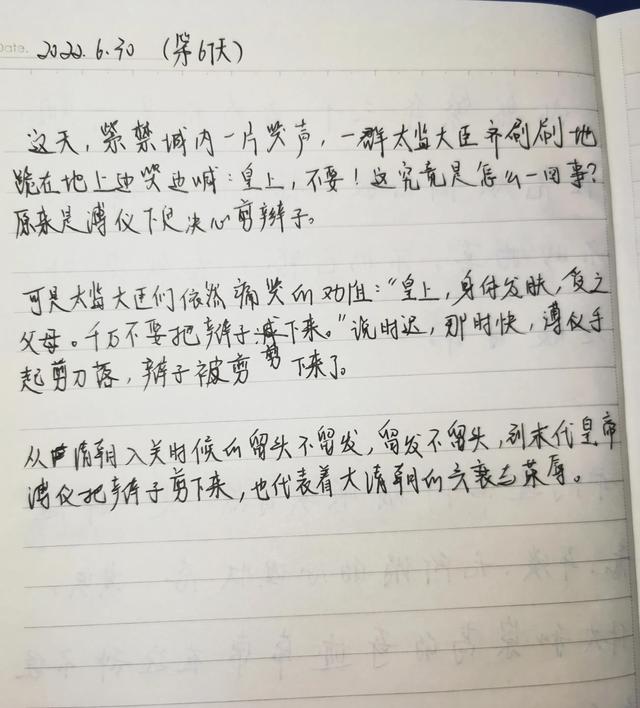 Date. 2022.6.30 (第67天)
这天，紫禁城内一片哭声，一群太监大臣齐刷刷地
跪在地上边哭边喊：皇上，不要！这究竟是怎么一回事？
原来是溥仪下定决心剪辫子。
可是太监大臣们依然痛哭的劝阻："皇上，身体发肤，受之
父母。千万不要把辫子下来。"说时迟，那时快，溥仪手
起剪刀落，辫子被剪剪下来了。
从清朝入关时候的留头不留发，留发不留头，到末代皇帝
溥仪把辫子剪下来，也代表着大清朝的兴衰与荣辱。